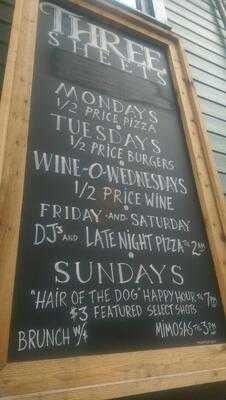 THREE
SHEETS
MONDAYS
1/2 PRICE PIZZA
TUESDAYS
1/2 PRICE BURGERS
WINE-O-WEDNESDAYS
1/2 PRICE WINE
FRIDAY AND SATURDAY
DJs AND LATE NIGHT PIZZA TIL 2AM
SUNDAYS
"HAIR OF THE DOG" HAPPY HOUR TIL 7PM
$3 FEATURED SELECT SHOTS
BRUNCH W/ $4 MIMOSAS TIL 3PM